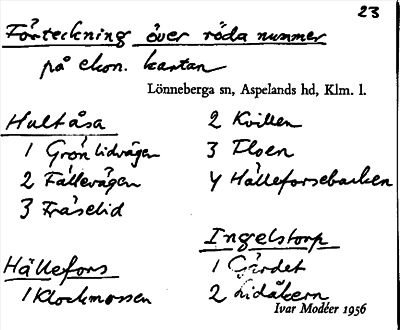 23
Förteckning över röda nummer
på ekon. kartan
Lönneberga sn, Aspelands hd, Klm. l.
Hultåsa
1 Grönlidvägen
2 Fällevägen
3 Fräselid
Hällefors
1 Klockmossen
2 Kvillen
3 Floen
4 Hälleforsebacken
Ingelstorp
1 Gärdet
2 Lidåkern
Ivar Modéer 1956